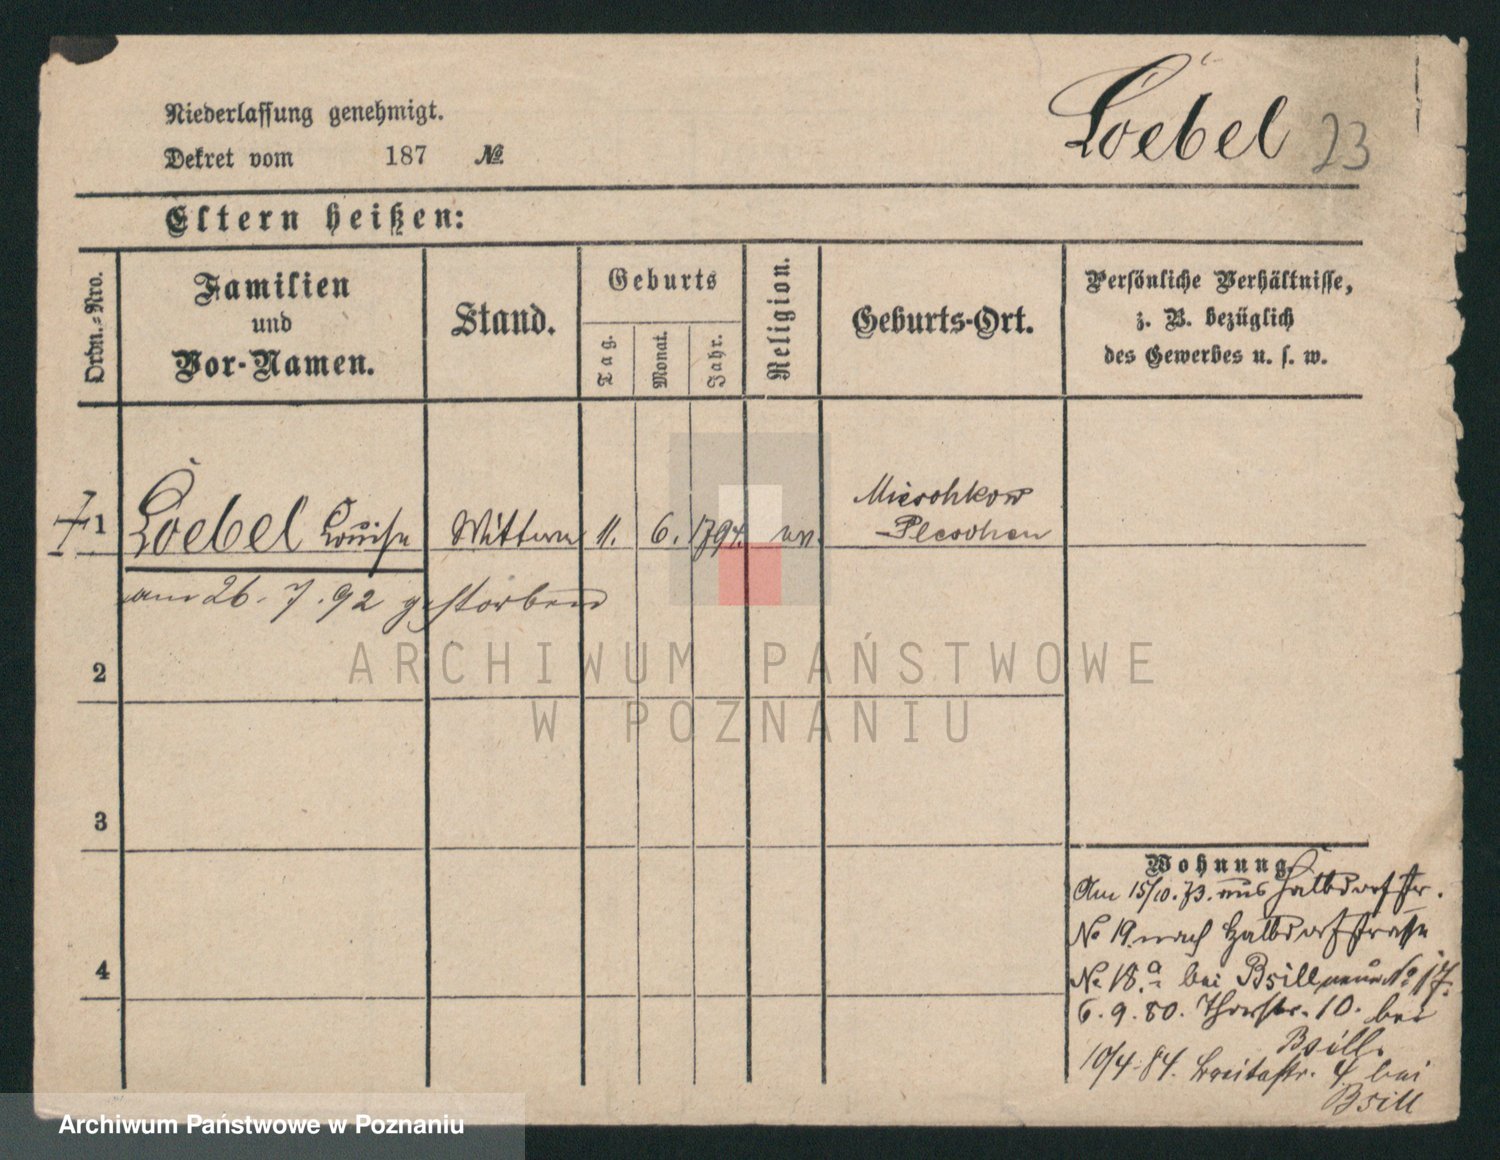 Niederlassung genehmigt.
Dekret vom 187 №
Loebel 23
Eltern heißen:
Ordn.-Nro.
Familien und Vor-Namen.
Stand.
Geburts
Tag.
Monat.
Jahr.
Religion.
Geburts-Ort.
Persönliche Verhältnisse,
z. B. bezüglich
des Gewerbes u. s. w.
1 Loebel Louise Wittwe 11. 6. 1794. Mieschkow
Pleschen
am 26. 7. 92 gestorben
2
3
4
Wohnung
Am 15/10. 73. aus Halbdorfstr.
No 19. nach Halbdorfstrasse
No 18.a bei Bsill neue No 17.
6. 9. 80. Thorstr. 10. bei
Bsill.
10/4. 84. Breitestr. 4 bei
Bsill
ARCHIWUM PAŃSTWOWE
W POZNANIU
Archiwum Państwowe w Poznaniu